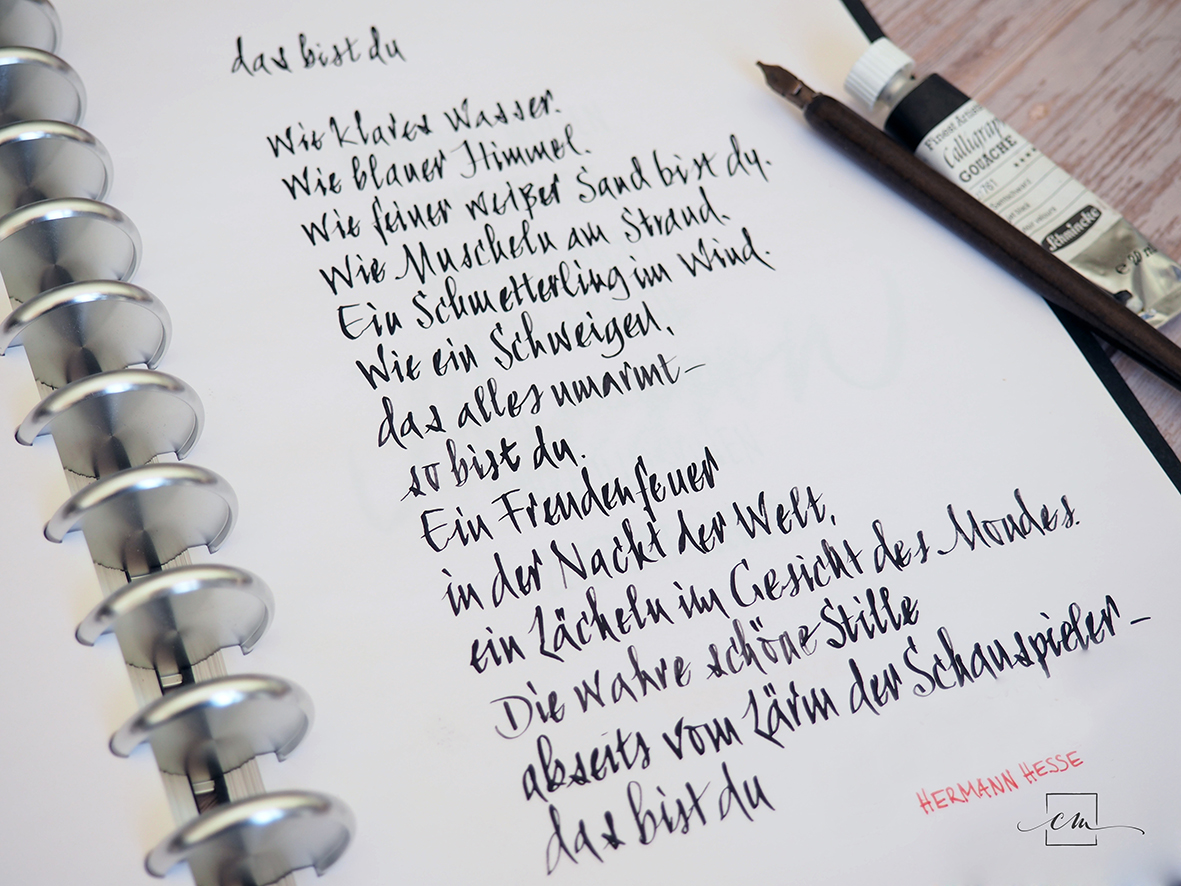 das bist du
Wie klares Wasser.
Wie blauer Himmel.
Wie feiner weißer Sand bist du.
Wie Muscheln am Strand.
Ein Schmetterling im Wind.
Wie ein Schweigen,
das alles umarmt–
so bist du.
Ein Freudenfeuer
in der Nacht der Welt,
ein Lächeln im Gesicht des Mondes.
Die wahre schöne Stille
abseits vom Lärm der Schauspieler–
das bist du
HERMANN HESSE
cm
Finest Artists'
GOUACHE
781
Schmincke
e 20 ml